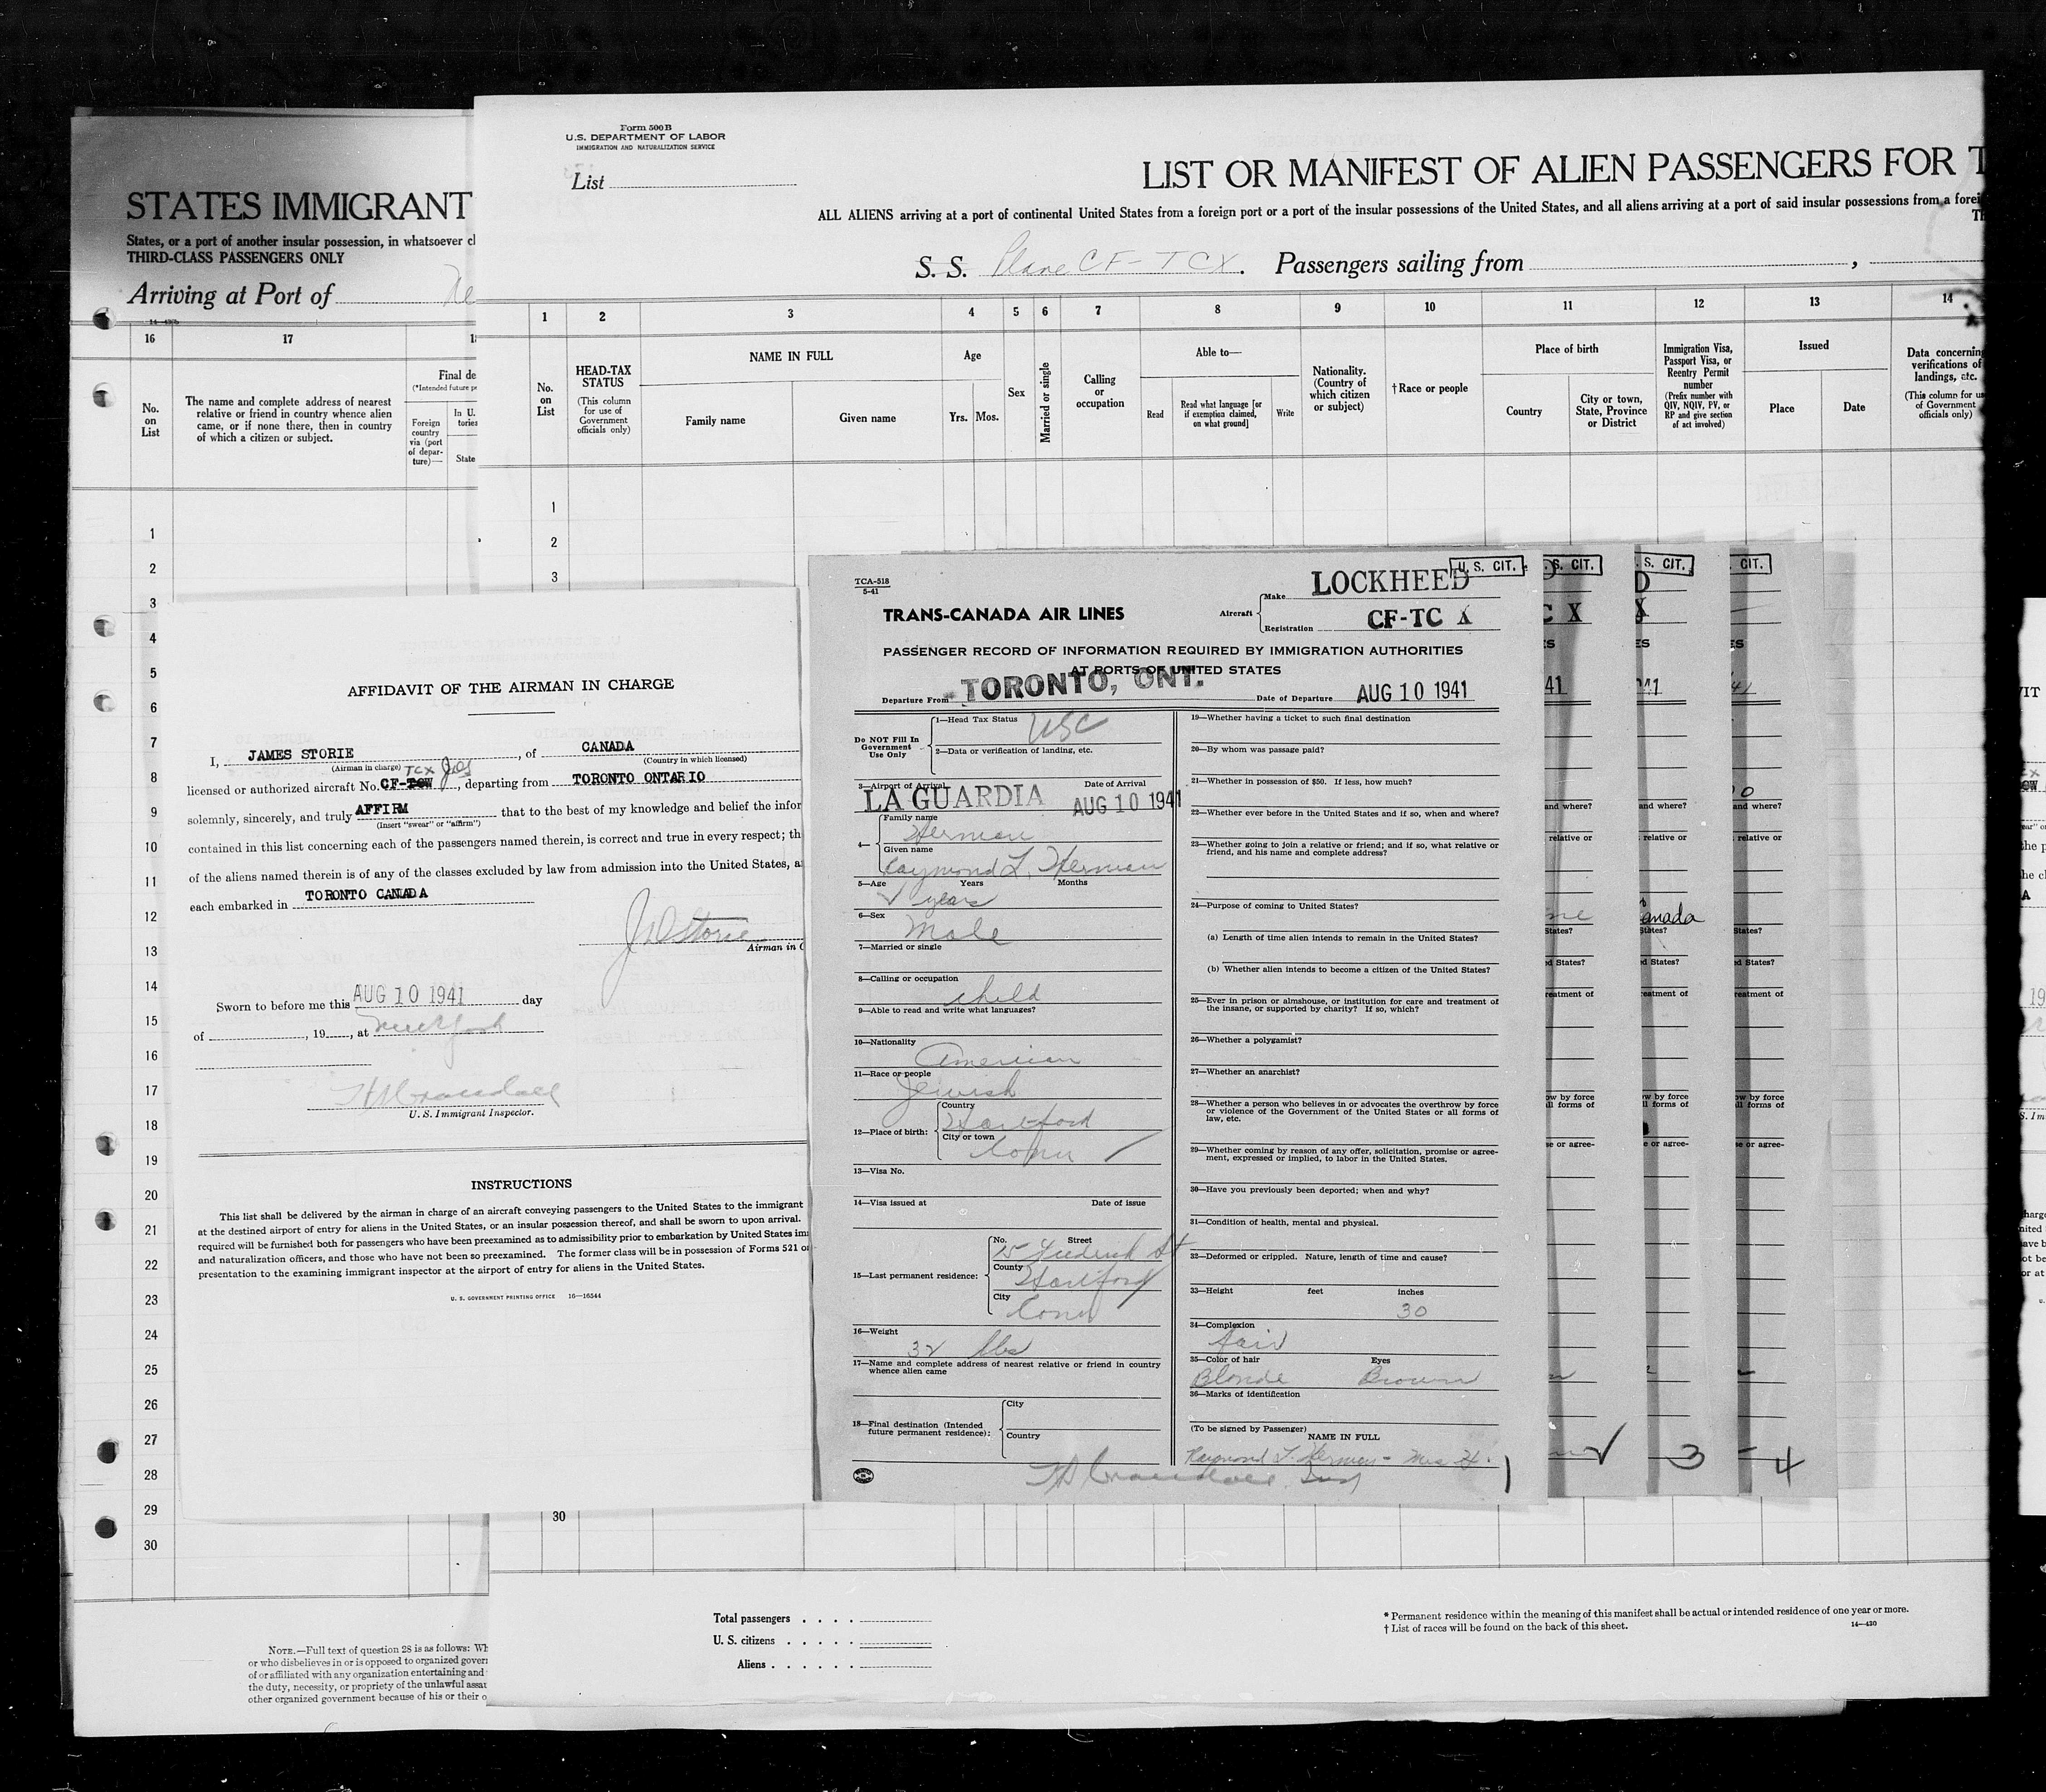 STATES IMMIGRANT
States, or a port of another insular possession, in whatsoever cl
THIRD-CLASS PASSENGERS ONLY
Arriving at Port of
16 17
No. on List
The name and complete address of nearest
relative or friend in country whence alien
came, or if none there, then in country
of which a citizen or subject.
Final de
(*Intended future pe
Foreign
country
via (port
of depar-
ture)—
In U.
tories
State
1
2
3
4
5
6
7
8
9
10
11
12
13
14
15
16
17
18
19
20
21
22
23
24
25
26
27
28
29
30
NOTE.—Full text of question 28 is as follows: Wh
or who disbelieves in or is opposed to organized govern
of or affiliated with any organization entertaining and
the duty, necessity, or propriety of the unlawful assau
other organized government because of his or their o
Form 500B
U.S. DEPARTMENT OF LABOR
IMMIGRATION AND NATURALIZATION SERVICE
List
LIST OR MANIFEST OF ALIEN PASSENGERS FOR T
ALL ALIENS arriving at a port of continental United States from a foreign port or a port of the insular possessions of the United States, and all aliens arriving at a port of said insular possessions from a forei
Th
S. S. Plane CF-TCX. Passengers sailing from ,
1 2 3 4 5 6 7 8 9 10 11 12 13 14
No. on List
HEAD-TAX
STATUS
(This column
for use of
Government
officials only)
NAME IN FULL
Family name Given name
Age
Yrs. Mos.
Sex
Married or single
Calling
or
occupation
Able to—
Read
Read what language [or
if exemption claimed,
on what ground]
Write
Nationality.
(Country of
which citizen
or subject)
†Race or people
Place of birth
Country
City or town,
State, Province
or District
Immigration Visa,
Passport Visa, or
Reentry Permit
number
(Prefix number with
QIV, NQIV, PV, or
RP and give section
of act involved)
Issued
Place Date
Data concerning
verifications of
landings, etc.
(This column for use
of Government
officials only)
1
2
3
30
Total passengers . . . .
U. S. citizens . . . . .
Aliens . . . . . .
* Permanent residence within the meaning of this manifest shall be actual or intended residence of one year or more.
† List of races will be found on the back of this sheet.
14—430
AFFIDAVIT OF THE AIRMAN IN CHARGE
I, JAMES STORIE, of CANADA
(Airman in charge) (Country in which licensed)
TCX
licensed or authorized aircraft No. CF-TCW, departing from TORONTO ONTARIO
solemnly, sincerely, and truly AFFIRM that to the best of my knowledge and belief the infor
(Insert "swear" or "affirm")
contained in this list concerning each of the passengers named therein, is correct and true in every respect; th
of the aliens named therein is of any of the classes excluded by law from admission into the United States, a
each embarked in TORONTO CANADA
J D Storie
Airman in C
Sworn to before me this AUG 10 1941 day
of , 19 , at New York
U. S. Immigrant Inspector.
INSTRUCTIONS
This list shall be delivered by the airman in charge of an aircraft conveying passengers to the United States to the immigrant
at the destined airport of entry for aliens in the United States, or an insular possession thereof, and shall be sworn to upon arrival.
required will be furnished both for passengers who have been preexamined as to admissibility prior to embarkation by United States im
and naturalization officers, and those who have not been so preexamined. The former class will be in possession of Forms 521 o
presentation to the examining immigrant inspector at the airport of entry for aliens in the United States.
U. S. GOVERNMENT PRINTING OFFICE 16—16544
TCA-518
5-41
TRANS-CANADA AIR LINES
Aircraft
Make LOCKHEED
Registration CF-TC X
U. S. CIT.
PASSENGER RECORD OF INFORMATION REQUIRED BY IMMIGRATION AUTHORITIES
AT PORTS OF UNITED STATES
Departure From TORONTO, ONT. Date of Departure AUG 10 1941
Do NOT Fill In
Government
Use Only
1—Head Tax Status USC
2—Data or verification of landing, etc.
3—Airport of Arrival Date of Arrival
LA GUARDIA AUG 10 1941
4—
Family name
Herman
Given name
Raymond L. Herman
5—Age Years Months
1 years
6—Sex
Male
7—Married or single
8—Calling or occupation
child
9—Able to read and write what languages?
10—Nationality
American
11—Race or people
Jewish
12—Place of birth:
Country
Hartford
City or town
Conn
13—Visa No.
14—Visa issued at Date of issue
15—Last permanent residence:
No. Street
15 Frederick St
County
Hartford
City
Conn
16—Weight
32 lbs
17—Name and complete address of nearest relative or friend in country
whence alien came
18—Final destination (Intended
future permanent residence):
City
Country
19—Whether having a ticket to such final destination
20—By whom was passage paid?
21—Whether in possession of $50. If less, how much?
22—Whether ever before in the United States and if so, when and where?
23—Whether going to join a relative or friend; and if so, what relative or
friend, and his name and complete address?
24—Purpose of coming to United States?
(a) Length of time alien intends to remain in the United States?
(b) Whether alien intends to become a citizen of the United States?
25—Ever in prison or almshouse, or institution for care and treatment of
the insane, or supported by charity? If so, which?
26—Whether a polygamist?
27—Whether an anarchist?
28—Whether a person who believes in or advocates the overthrow by force
or violence of the Government of the United States or all forms of
law, etc.
29—Whether coming by reason of any offer, solicitation, promise or agree-
ment, expressed or implied, to labor in the United States.
30—Have you previously been deported; when and why?
31—Condition of health, mental and physical.
32—Deformed or crippled. Nature, length of time and cause?
33—Height feet inches
30
34—Complexion
fair
35—Color of hair Eyes
Blonde Brown
36—Marks of identification
(To be signed by Passenger)
NAME IN FULL
Raymond L. Herman - Mrs H.
1
S. CIT. S. CIT. CIT.
anada
3 - 4